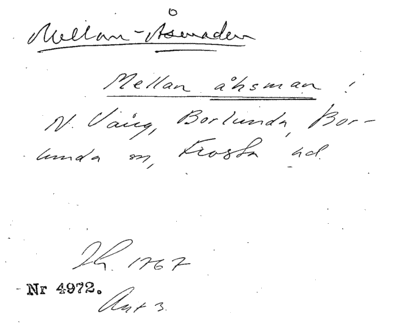 Mellan-Åsmaden
Mellan åhsman i
N. Väng, Borlunda, Bor-
lunda sn, Frosta hd.
Sk. 1767
Nr 4972.
Akt 3.